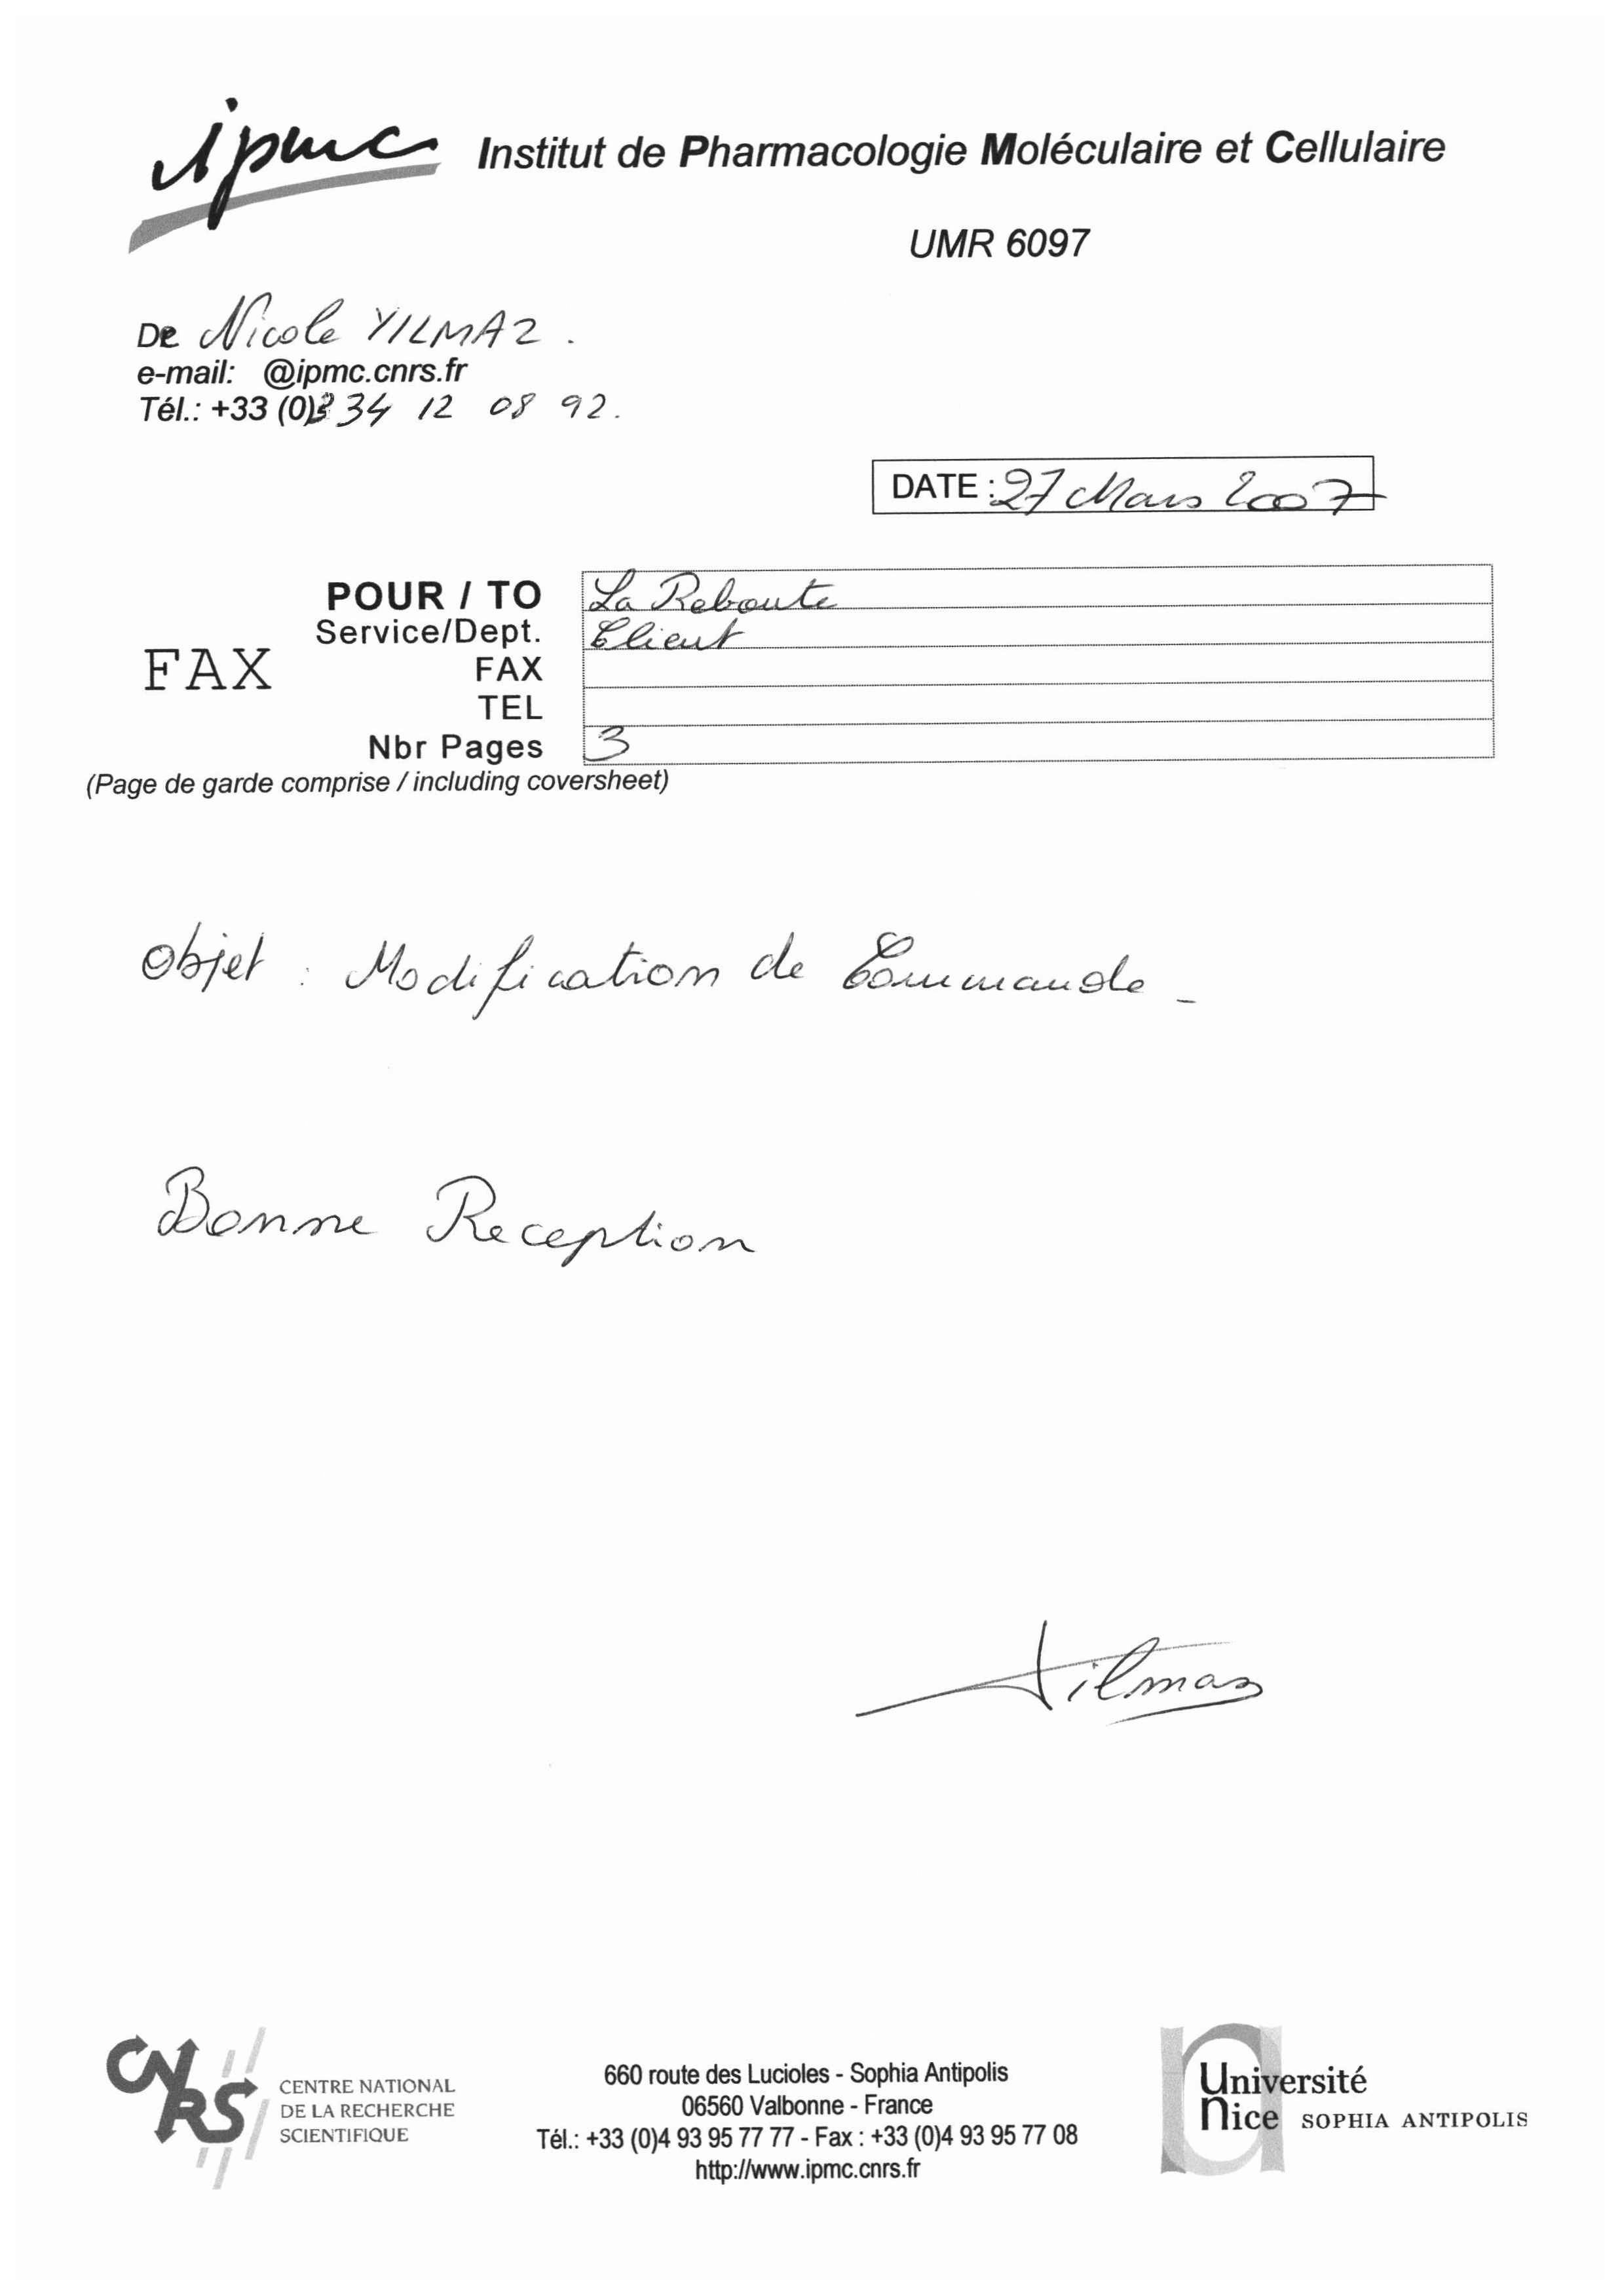 ipmc Institut de Pharmacologie Moléculaire et Cellulaire
UMR 6097
De Nicole YILMAZ.
e-mail: @ipmc.cnrs.fr
Tél.: +33 (0)3 34 12 08 92.
DATE : 27 Mars 2007
POUR / TO La Reboute
Service/Dept. Client
FAX
FAX
TEL
Nbr Pages 3
(Page de garde comprise / including coversheet)
Objet : Modification de Commande -
Bonne Reception
Yilmaz
CNRS
CENTRE NATIONAL
DE LA RECHERCHE
SCIENTIFIQUE
660 route des Lucioles - Sophia Antipolis
06560 Valbonne - France
Tél.: +33 (0)4 93 95 77 77 - Fax : +33 (0)4 93 95 77 08
http://www.ipmc.cnrs.fr
Université
Nice SOPHIA ANTIPOLIS